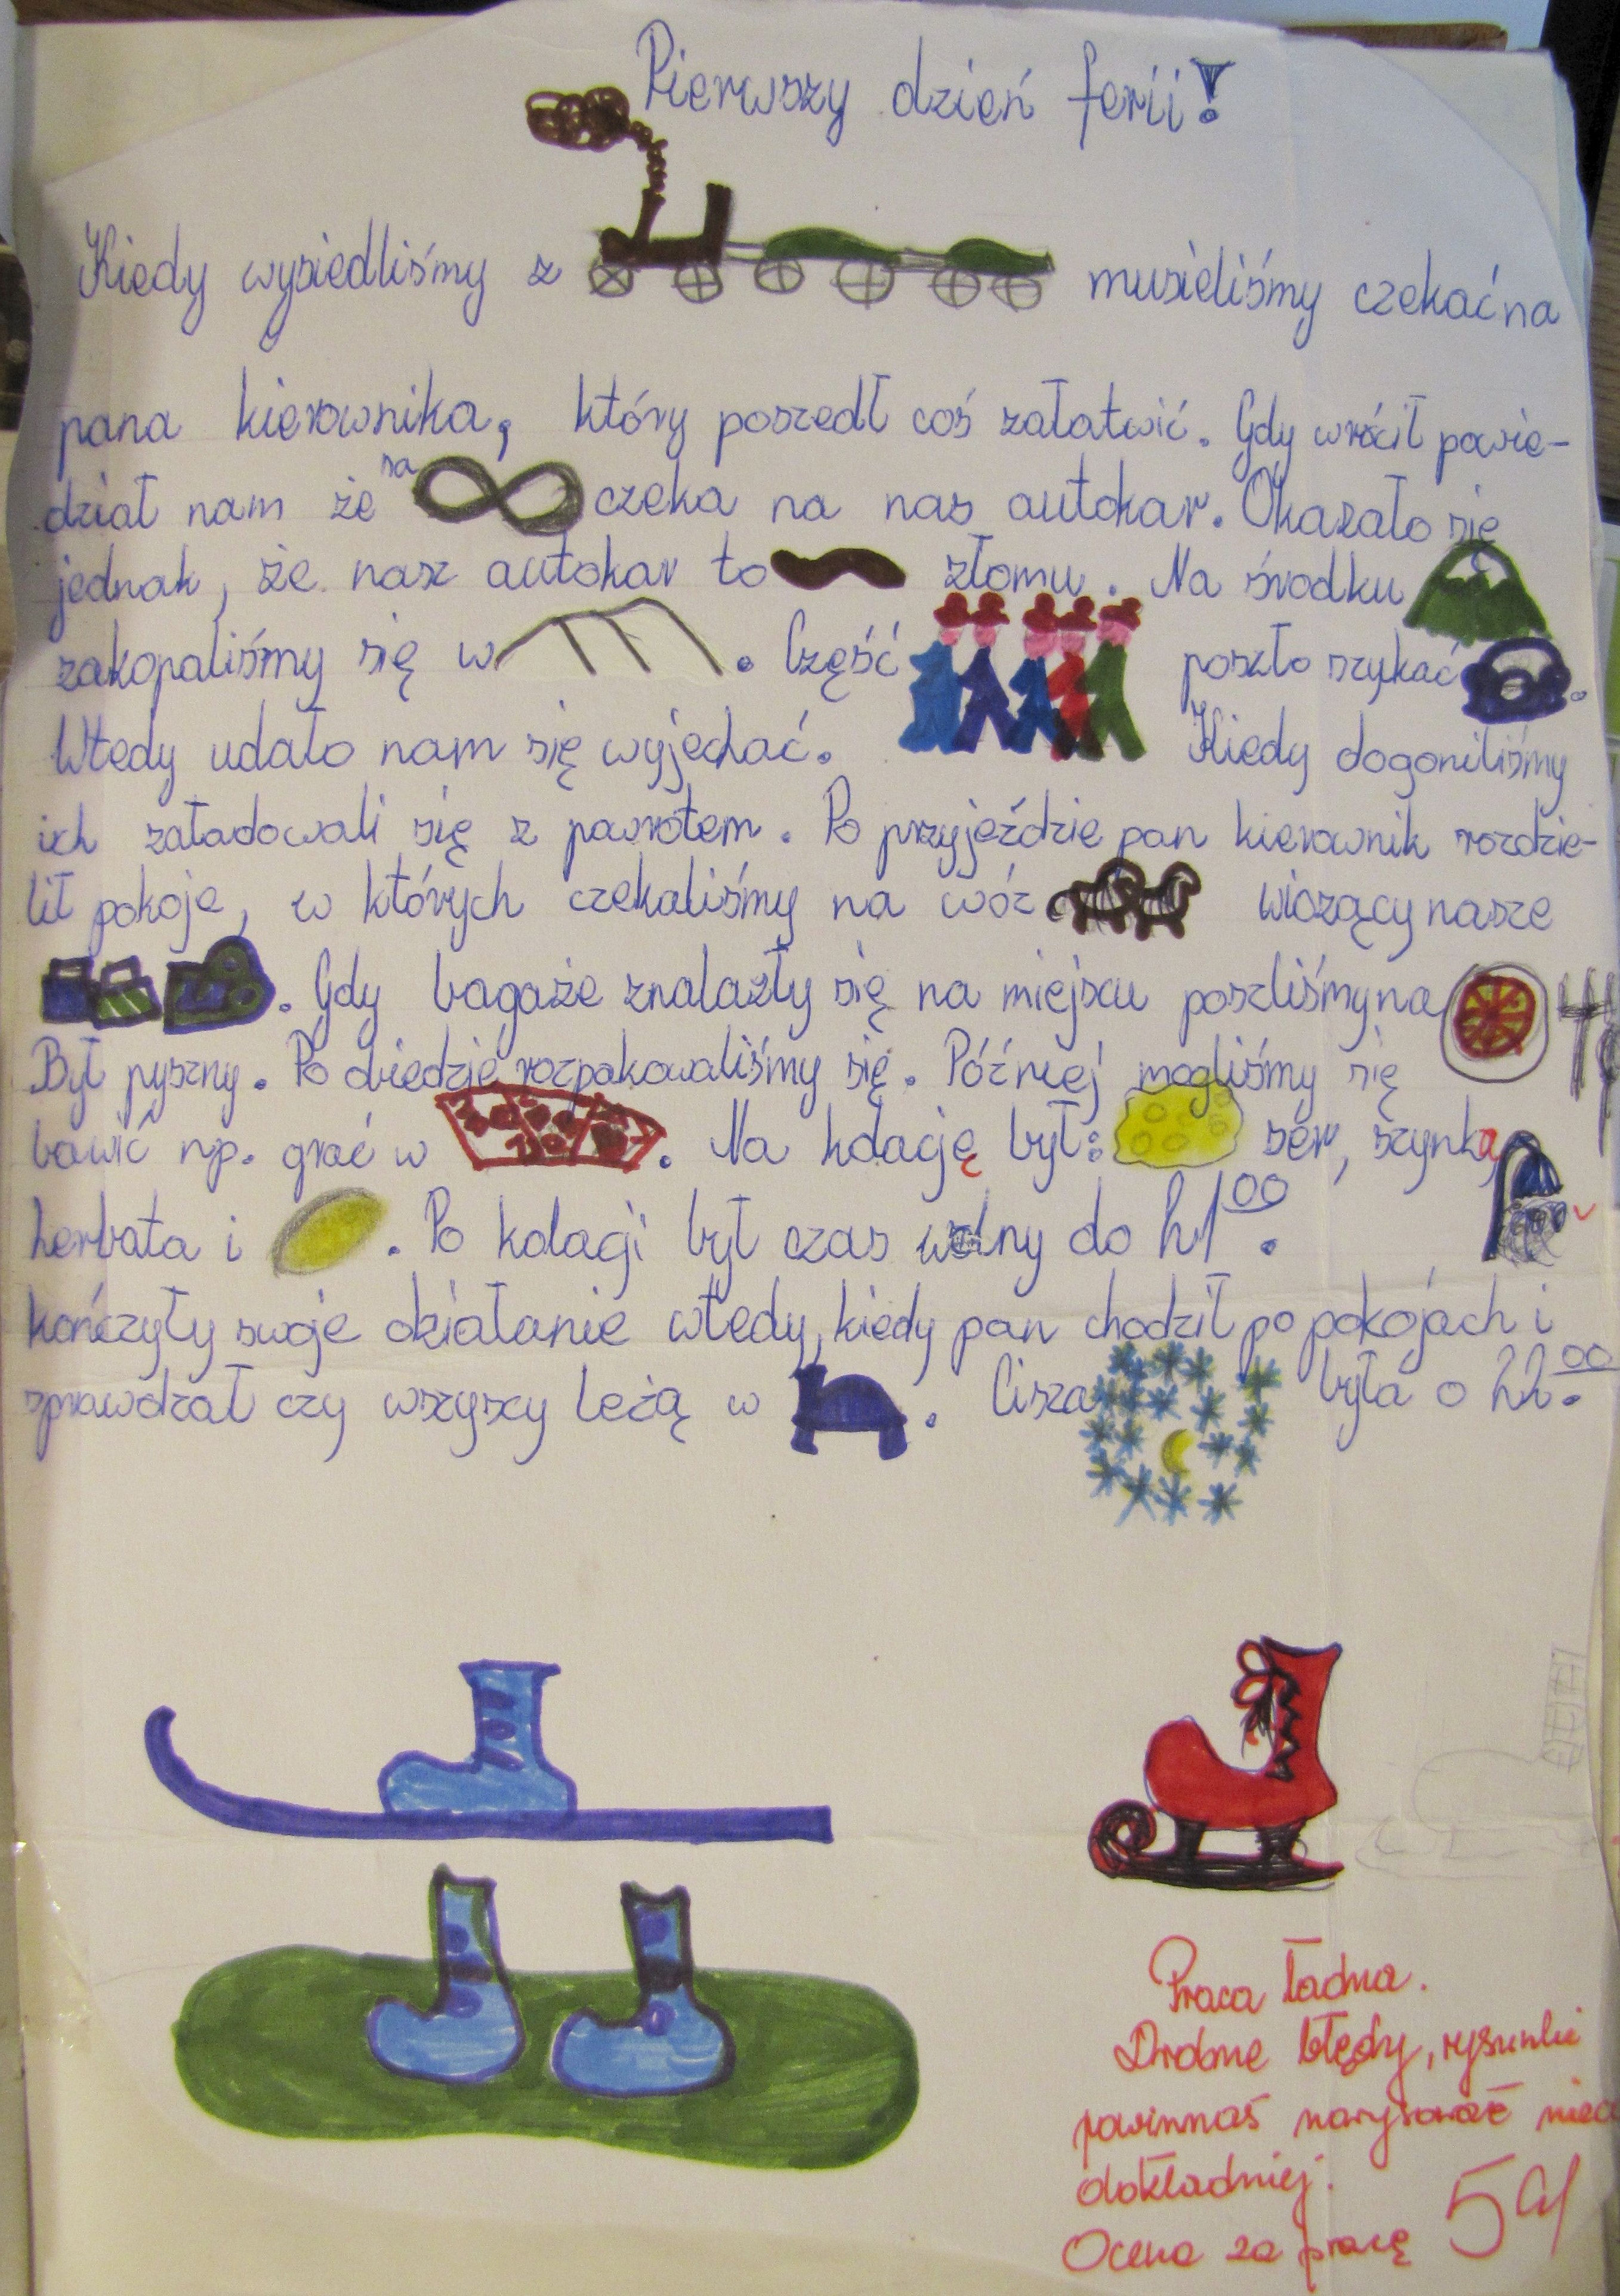 Pierwszy dzień ferii!
Kiedy wysiedliśmy z musieliśmy czekać na
pana kierownika, który poszedł coś załatwić. Gdy wrócił powie-
dział nam że na czeka na nas autokar. Okazało się
jednak, że nasz autokar to złomu. Na środku
zakopaliśmy się w . Część poszło szykać .
Wtedy udało nam się wyjechać. Kiedy dogoniliśmy
ich załadowali się z pawrotem. Po przyjeździe pan kierownik rozdzie-
lił pokoje, w których czekaliśmy na wóz wiozący nasze
. Gdy bagaże znalazły się na miejscu poszliśmy na
Był pyszny. Po obiedzie rozpakowaliśmy się. Później mogliśmy się
bawić np. grać w . Na kolację był: sér, szynka
herbata i . Po kolagi był czas wolny do 21 00.
kończyły swoje działanie wtedy, kiedy pan chodził po pokojach i
sprawdzał czy wszyscy leżą w . Cisza była o 22 00.
Praca ładna.
Drobne błędy, rysunki
powinnaś narysować
dokładniej.
Ocena za pracę 5